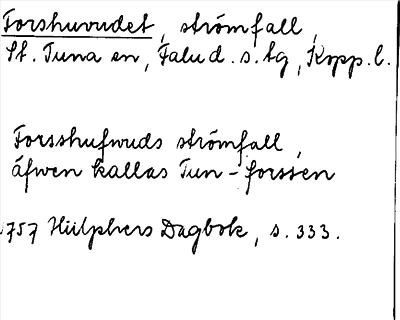 Forshuvudet, strömfall,
St. Tuna sn, Falu d. s. tg, Kopp. l.
Forsshufwuds strömfall,
äfwen kallas Tun-forssen
1757 Hülphers Dagbok, s. 333.